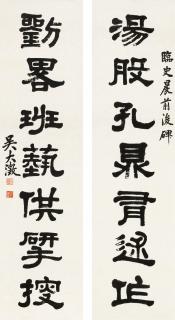 臨史晨前後碑
湯般孔鼎有述作
劉畧班藝供揅搜
吳大澂